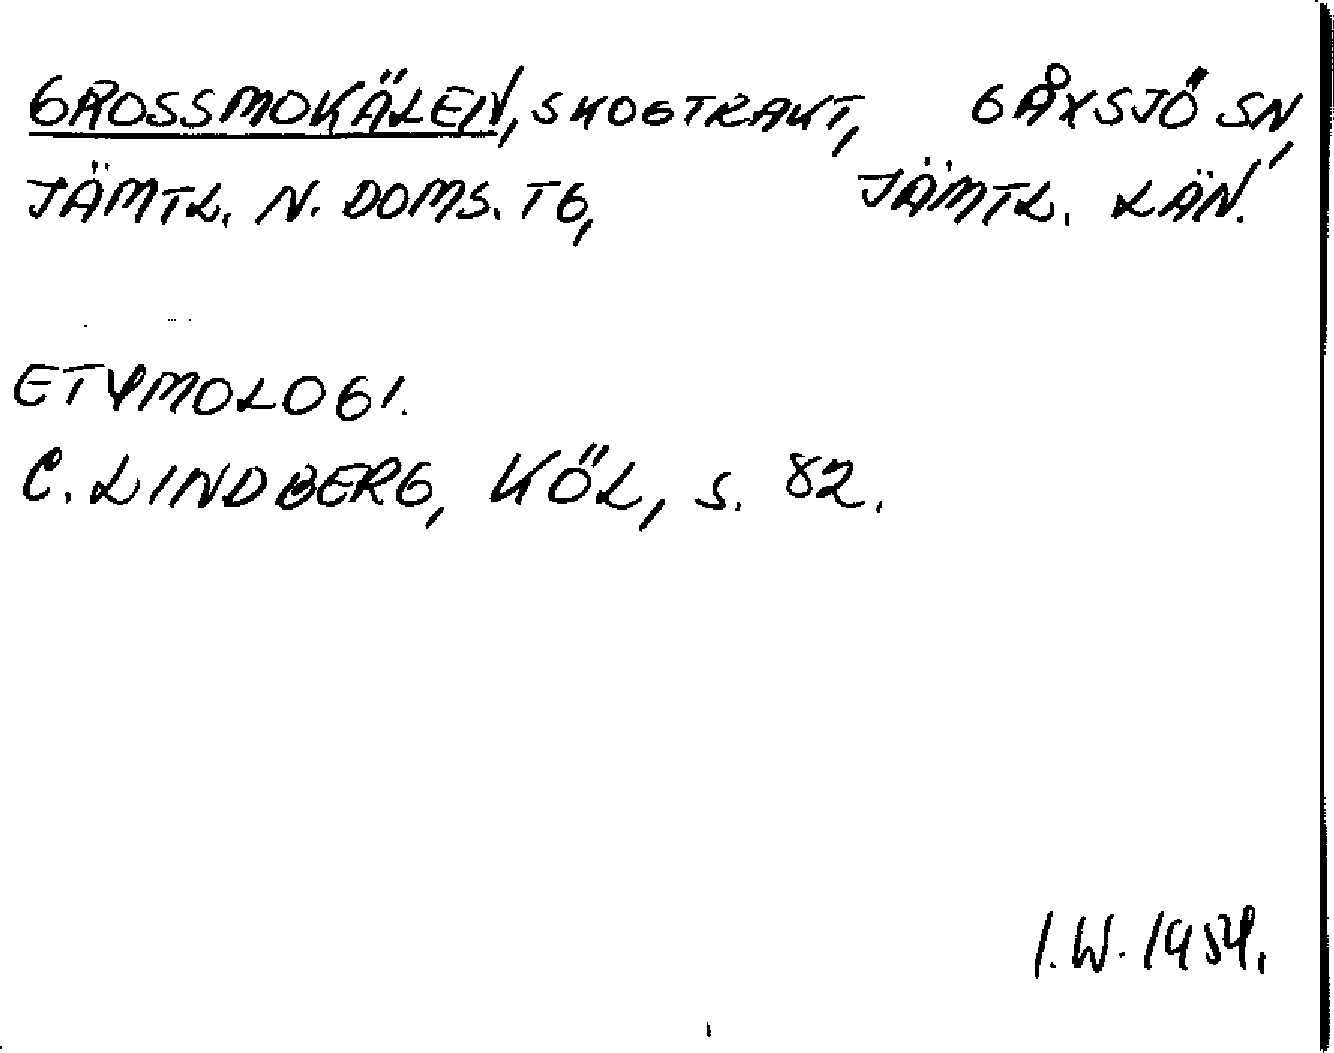 GROSSMOKÄLEN, SKOGTRAKT, GÅXSJÖ SN,
JÄMTL. N. DOMS. TG, JÄMTL. LÄN.
ETYMOLOGI.
C. LINDBERG, KÖL, S. 82.
I.W. 1954.